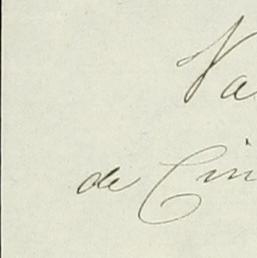 Va
de Cin